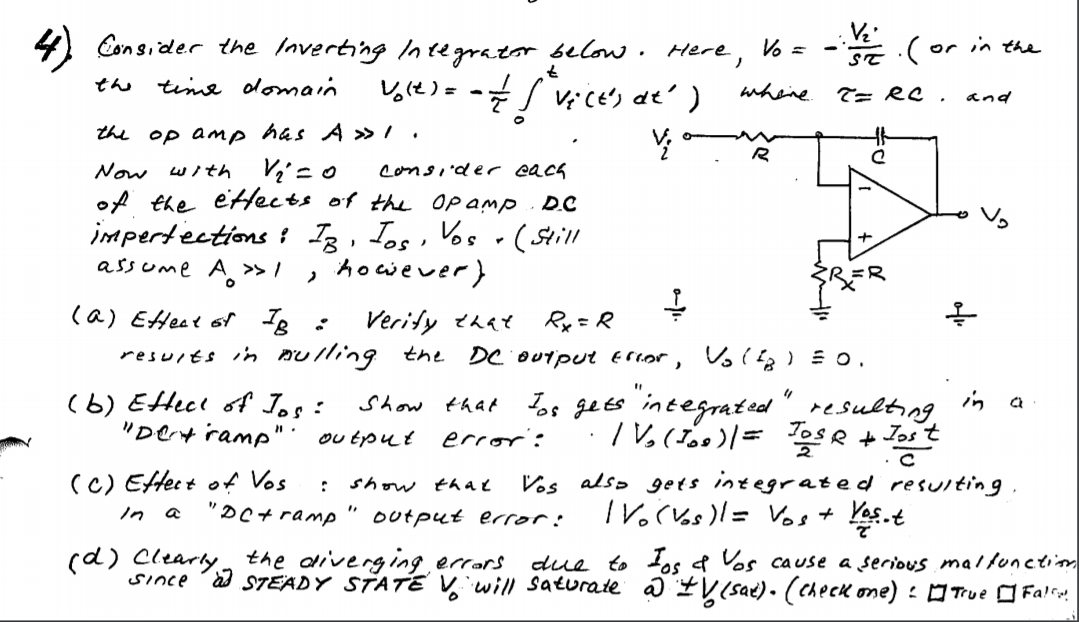 4) Consider the Inverting Integrator below. Here, Vo = - Vi/sτ. (or in the
the time domain Vo(t) = - 1/τ ∫₀ᵗ Vi(t') dt' ) where τ = RC. and
the op amp has A >> 1.
Now with Vi = 0 consider each
of the effects of the OP amp DC
imperfections: IB, Ios, Vos. (Still
assume Ao >> 1, however)
Vi
R
C
-
+
Vo
Rx = R
(a) Effect of IB : Verify that Rx = R
results in nulling the DC output error, Vo(IB) ≡ 0.
(b) Effect of Ios : Show that Ios gets "integrated" resulting in a
"DC + ramp" output error: |Vo(Ios)| = Ios/2 R + Ios t/C
(c) Effect of Vos : show that Vos also gets integrated resulting
in a "DC + ramp" output error: |Vo(Vos)| = Vos + Vos/τ . t
(d) Clearly, the diverging errors due to Ios & Vos cause a serious malfunction
since @ STEADY STATE Vo will saturate @ ± Vo(sat). (check one) : ☐ True ☐ False